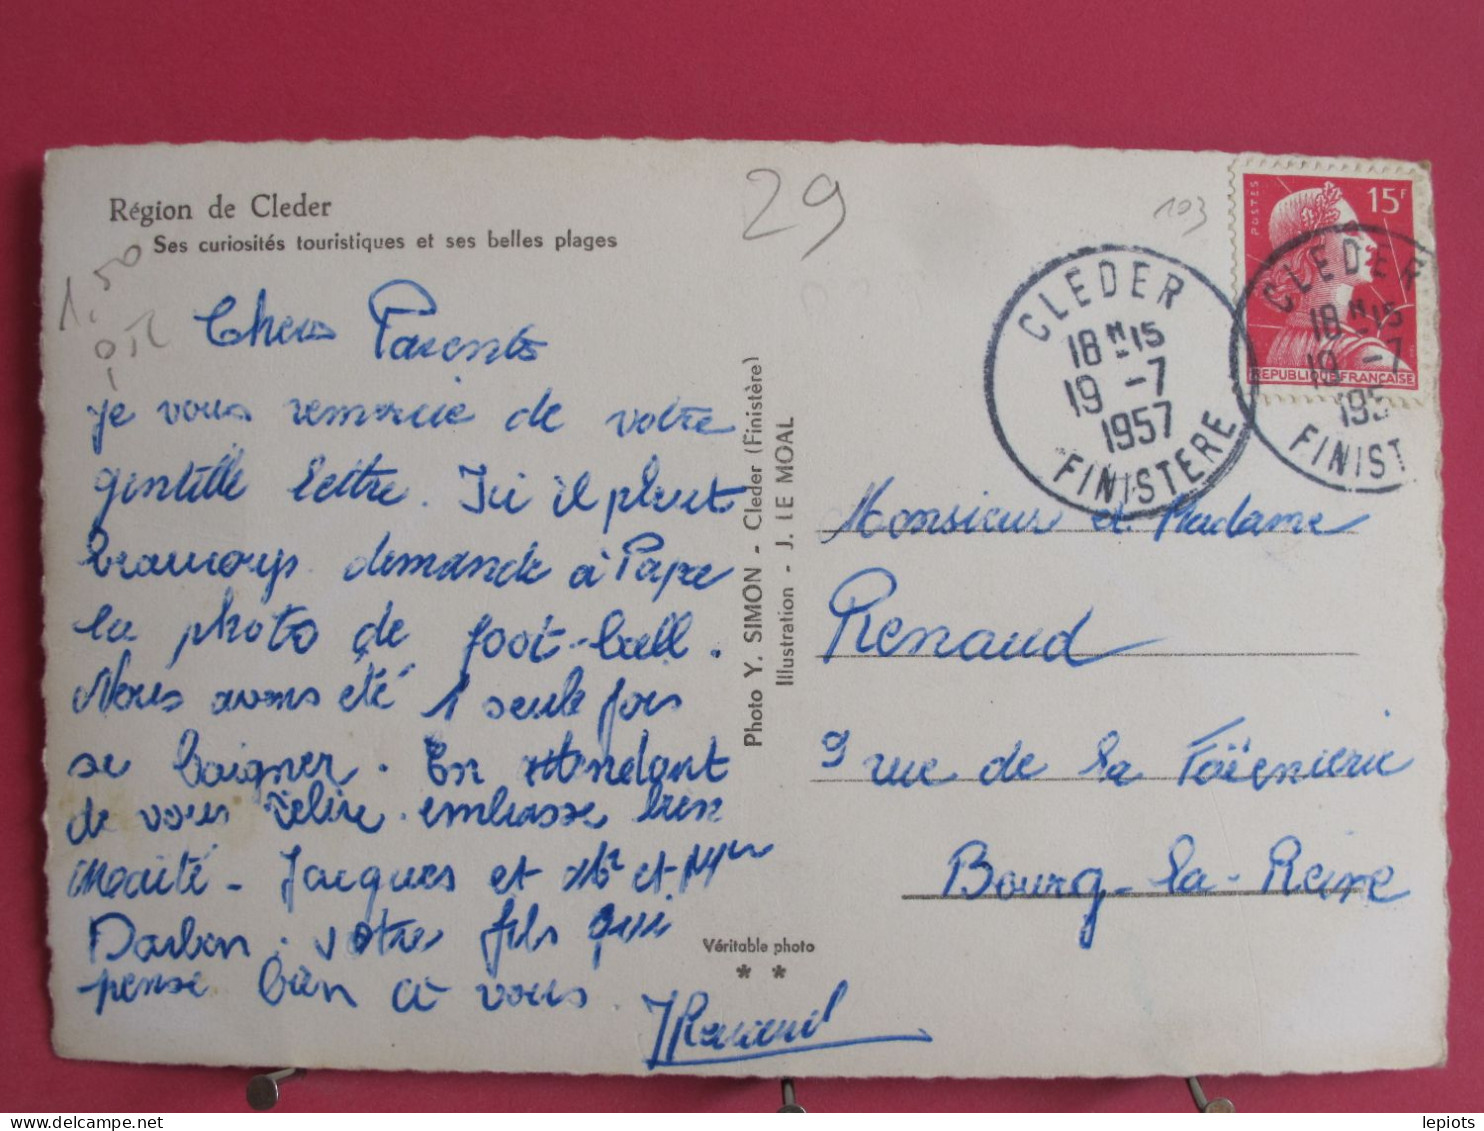 Région de Cleder
Ses curiosités touristiques et ses belles plages
1,50
Chers Parents
je vous remercie de votre
gentille lettre. Ici il pleut
beaucoup. demande à Papa
la photo de foot-ball.
Nous avons été 1 seule fois
se baigner. En attendant
de vous relire. embrasse bien
Maïté - Jacques et Mr et Mme
Darbon. votre fils qui
pense bien à vous.
JRenaud
Photo Y. SIMON - Cleder (Finistère)
Illustration - J. LE MOAL
Véritable photo
* *
29
103
POSTES
15F
REPUBLIQUE FRANÇAISE
CLEDER
18H15
19 -7
1957
FINISTERE
CLEDER
18H15
19 -7
195
FINIST
Monsieur et Madame
Renaud
9 rue de la Faïencerie
Bourg-la-Reine
lepiots